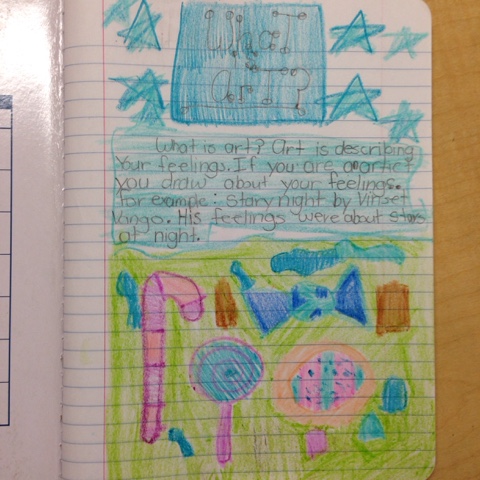 What
art?
What is art? Art is describing
Your feelings. If you are a artic?
you draw about your feelings.
For example: stary night by Vinset
Vango. His feelings were about stars
at night.